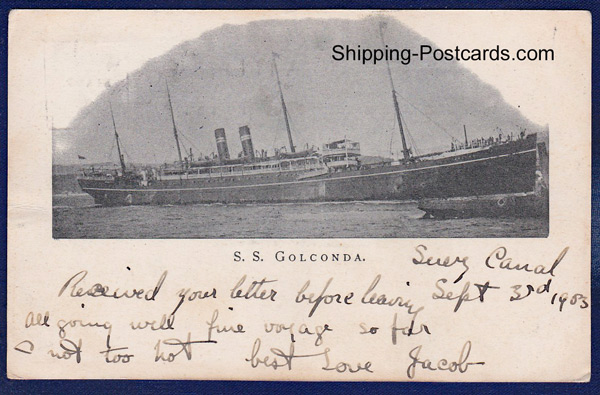 Shipping-Postcards.com
S. S. GOLCONDA.
Suez Canal
Sept 3rd 1903
Received your letter before leaving
All going well fine voyage so far
& not too hot best Love Jacob